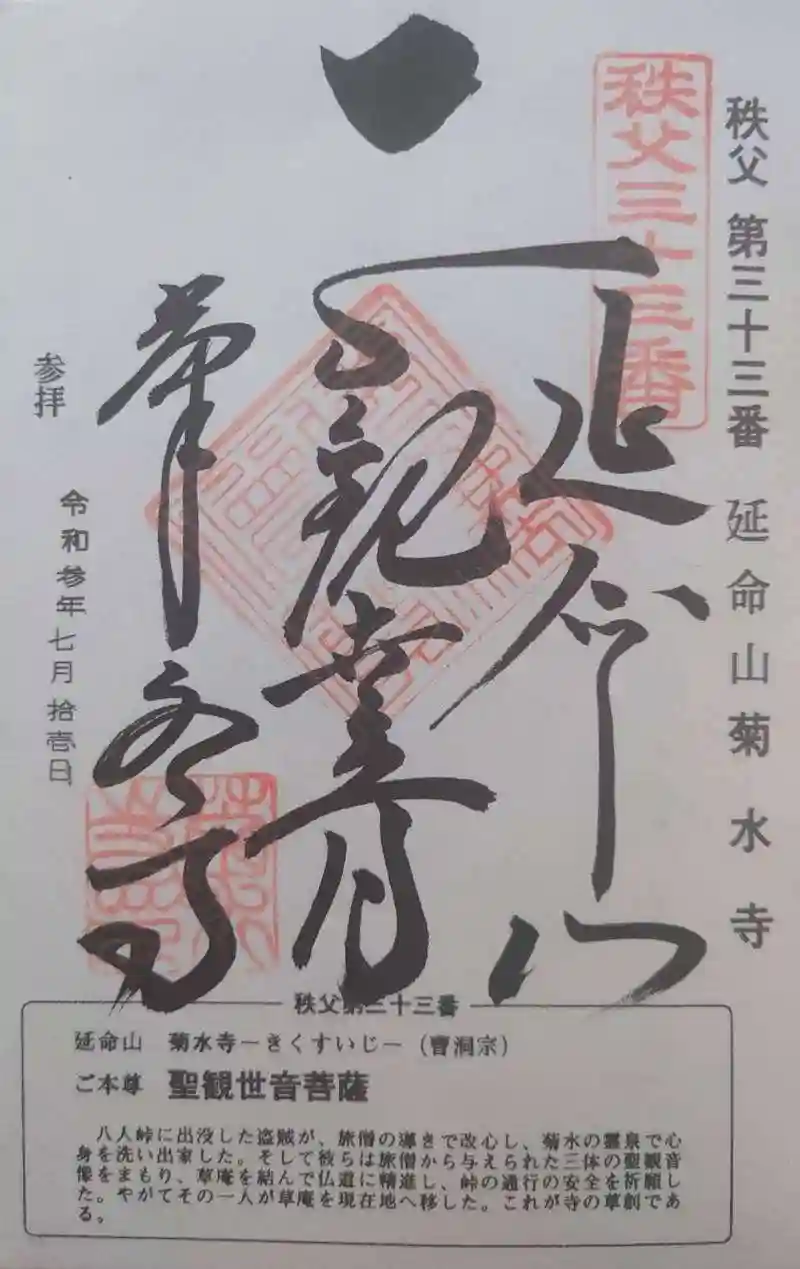 秩父 第三十三番 延命山菊水寺
秩父三十三番
延命山
観世音
菊水寺
参拝
令和参年七月拾壱日
秩父第三十三番
延命山 菊水寺−きくすいじ−(曹洞宗)
ご本尊 聖観世音菩薩
八人峠に出没した盗賊が、旅僧の導きで改心し、菊水の霊泉で心
身を洗い出家した。そして彼らは旅僧から与えられた三体の聖観音
像をまもり、草庵を結んで仏道に精進し、峠の通行の安全を祈願し
た。やがてその一人が草庵を現在地へ移した。これが寺の草創であ
る。